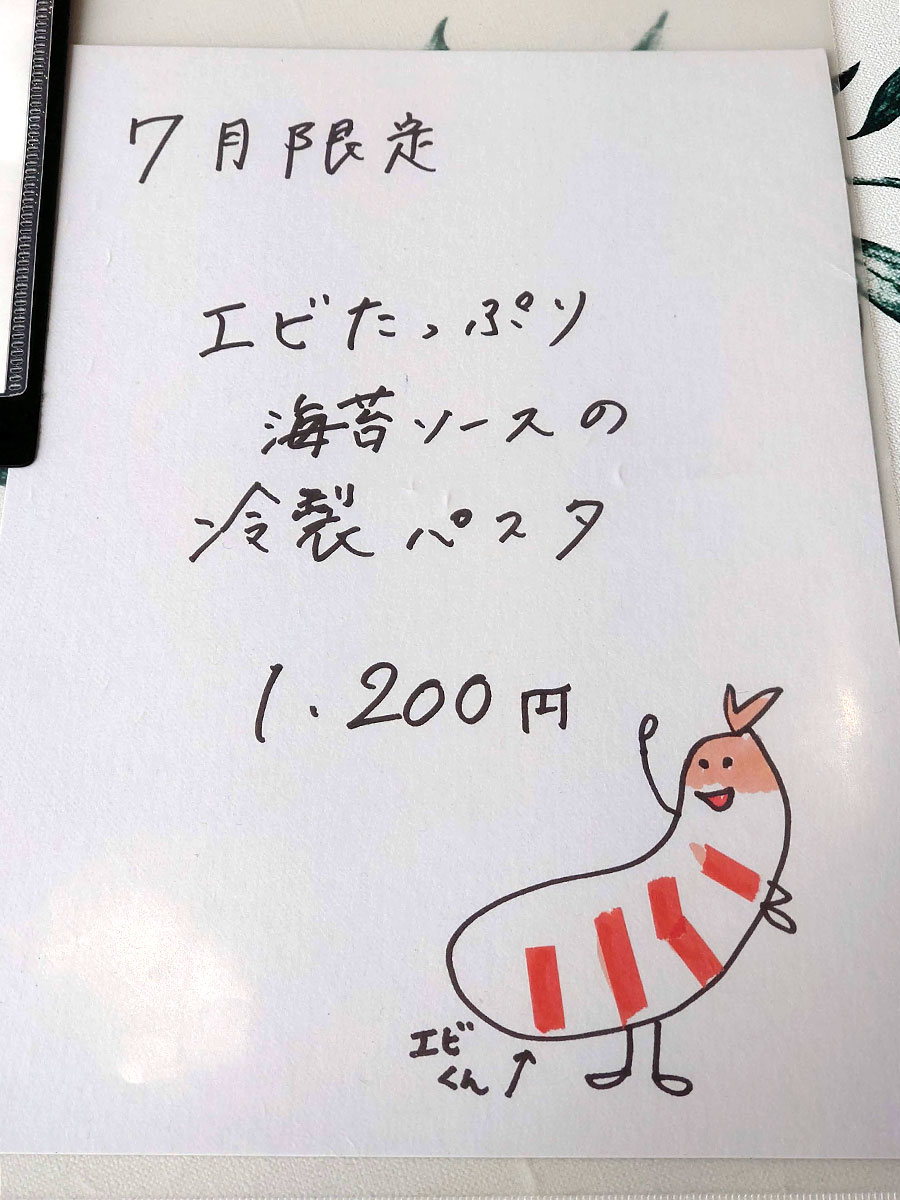 7月限定
エビたっぷり
海苔ソースの
冷製パスタ
1.200円
エビ
くん